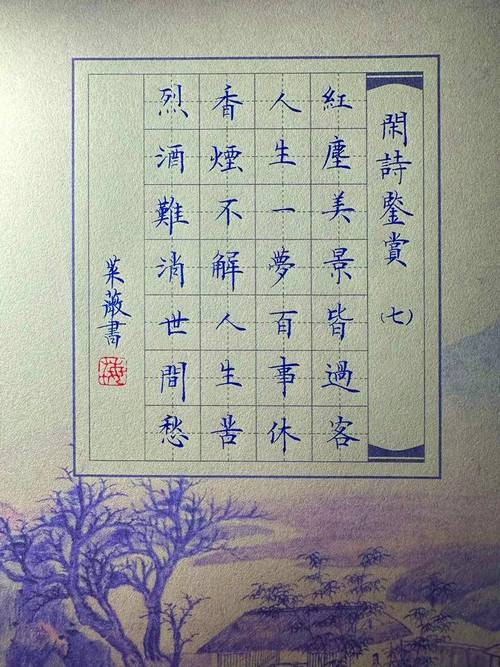 閑詩鑒賞（七）
紅塵美景皆過客
人生一夢百事休
香煙不解人生苦
烈酒難消世間愁
茱薇書